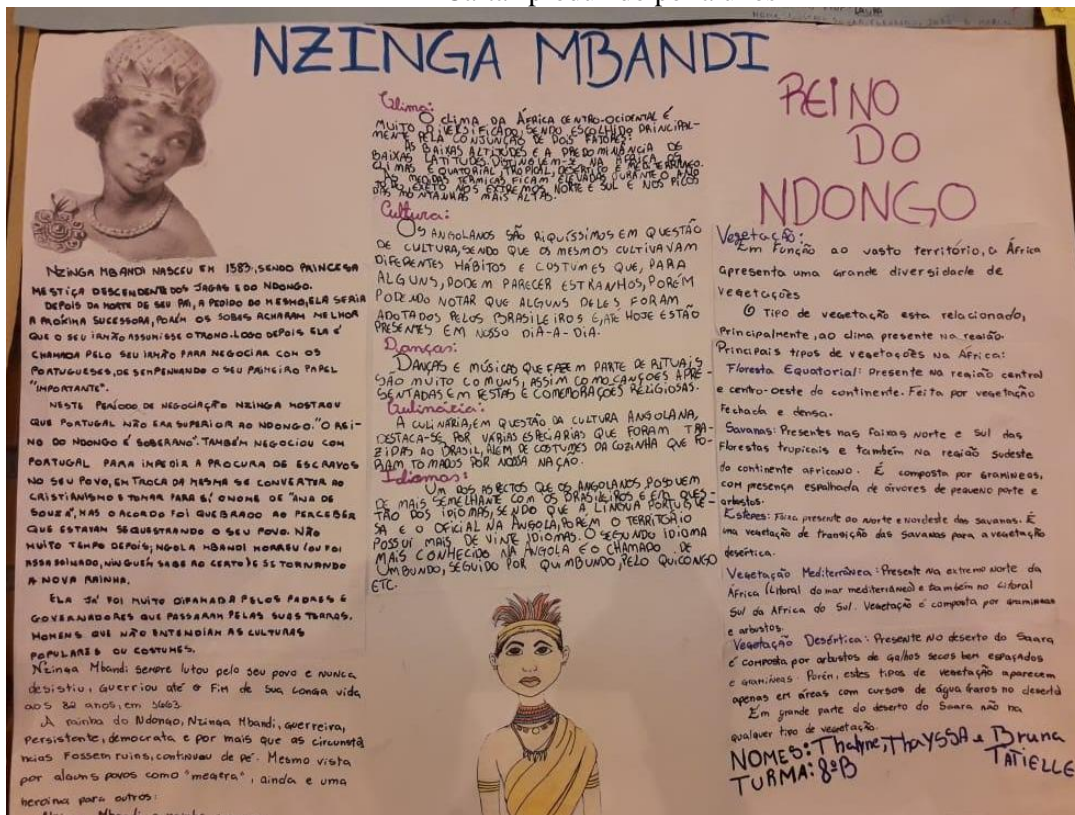 NZINGA MBANDI
NZINGA MBANDI NASCEU EM 1583, SENDO PRINCESA
MESTIÇA DESCENDENTE DOS JAGAS E DO NDONGO.
DEPOIS DA MORTE DE SEU PAI, A PEDIDO DO MESMO, ELA SERIA
A PRÓXIMA SUCESSORA, PORÉM OS SOBAS ACHARAM MELHOR
QUE O SEU IRMÃO ASSUMISSE O TRONO. LOGO DEPOIS ELA É
CHAMADA PELO SEU IRMÃO PARA NEGOCIAR COM OS
PORTUGUESES, DESEMPENHANDO O SEU PRIMEIRO PAPEL
"IMPORTANTE".
NESTE PERÍODO DE NEGOCIAÇÃO NZINGA MOSTROU
QUE PORTUGAL NÃO ERA SUPERIOR AO NDONGO. "O REI-
NO DO NDONGO É SOBERANO". TAMBÉM NEGOCIOU COM
PORTUGAL PARA IMPEDIR A PROCURA DE ESCRAVOS
NO SEU POVO, EM TROCA DA MESMA SE CONVERTER AO
CRISTIANISMO E TOMAR PARA SÍ O NOME DE "ANA DE
SOUZA", MAS O ACORDO FOI QUEBRADO AO PERCEBER
QUE ESTAVAM SEQUESTRANDO O SEU POVO. NÃO
MUITO TEMPO DEPOIS; NGOLA MBANDI MORREU (OU FOI
ASSASSINADO, NINGUÉM SABE AO CERTO) E SE TORNANDO
A NOVA RAINHA.
ELA JÁ FOI MUITO DIFAMADA PELOS PADRES E
GOVERNADORES QUE PASSARAM PELAS SUAS TERRAS.
HOMENS QUE NÃO ENTENDIAM AS CULTURAS
POPULARES OU COSTUMES.
Nzinga Mbandi sempre lutou pelo seu povo e nunca
desistiu, guerriou até o fim de sua longa vida
aos 82 anos, em
A rainha do Ndongo, Nzinga Mbandi, guerreira,
persistente, democrata e por mais que as circunstâ
ncias fossem ruins, continuou de pé. Mesmo vista
por alguns povos como "megera", ainda e uma
heroína para outros:
Clima:
O CLIMA DA ÁFRICA CENTRO-OCIDENTAL É
MUITO DIVERSIFICADO, SENDO ESCOLHIDO PRINCIPAL-
MENTE PELA CONJUNÇÃO DE DOIS FATORES:
AS BAIXAS ALTITUDES E A PREDOMINÂNCIA DE
BAIXAS LATITUDES. DISTINGUEM-SE NA ÁFRICA OS
CLIMAS EQUATORIAL, TROPICAL, DESÉRTICO E MEDITERRÂNEO.
AS MÉDIAS TÉRMICAS FICAM ELEVADAS DURANTE O ANO
TODO, EXETO NOS EXTREMOS NORTE E SUL E NOS PICOS
DAS MONTANHAS MAIS ALTAS.
Cultura:
OS ANGOLANOS SÃO RIQUÍSSIMOS EM QUESTÃO
DE CULTURA, SENDO QUE OS MESMOS CULTIVAVAM
DIFERENTES HÁBITOS E COSTUMES QUE, PARA
ALGUNS, PODEM PARECER ESTRANHOS, PORÉM
PODENDO NOTAR QUE ALGUNS DELES FORAM
ADOTADOS PELOS BRASILEIROS E, ATÉ HOJE ESTÃO
PRESENTES EM NOSSO DIA-A-DIA.
Danças:
DANÇAS E MÚSICAS QUE FAZEM PARTE DE RITUAIS
SÃO MUITO COMUNS, ASSIM COMO CANÇÕES APRE-
SENTADAS EM FESTAS E COMEMORAÇÕES RELIGIOSAS.
Culinária:
A CULINÁRIA, EM QUESTÃO DA CULTURA ANGOLANA,
DESTACA-SE POR VÁRIAS ESPECIARIAS QUE FORAM TRA-
ZIDAS AO BRASIL, ALÉM DE COSTUMES DA COZINHA QUE FO-
RAM TOMADOS POR NOSSA NAÇÃO.
Idiomas:
UM DOS ASPECTOS QUE OS ANGOLANOS POSSUEM
DE MAIS SEMELHANTE COM OS BRASILEIROS E EM QUES-
TÃO DOS IDIOMAS, SENDO QUE A LÍNGUA PORTUGUE-
SA E O OFICIAL NA ANGOLA, PORÉM O TERRITÓRIO
POSSUÍ MAIS DE VINTE IDIOMAS. O SEGUNDO IDIOMA
MAIS CONHECIDO NA ANGOLA E O CHAMADO DE
UMBUNDO, SEGUIDO POR QUIMBUNDO, PELO QUICONGO
ETC.
REINO
DO
NDONGO
Vegetação:
Em função ao vasto território, a África
apresenta uma grande diversidade de
vegetações
O tipo de vegetação esta relacionado,
principalmente, ao clima presente na região.
Principais tipos de vegetações na África:
Floresta Equatorial: Presente na região central
e centro-oeste do continente. Feita por vegetação
fechada e densa.
Savanas: Presentes nas faixas norte e sul das
florestas tropicais e também na região sudeste
do continente africano. É composta por gramíneas,
com presença espalhada de árvores de pequeno porte e
arbustos.
Estepes: Faixa presente ao norte e nordeste das savanas. É
uma vegetação de transição das savanas para a vegetação
desértica.
Vegetação Mediterrânea: Presente na extremo norte da
África (litoral do mar mediterrâneo) e também no litoral
sul da África do Sul. Vegetação é composta por gramíneas
e arbustos.
Vegetação Desértica: Presente no deserto do Saara
é composta por arbustos de galhos secos bem espaçados
e gramíneas. Porém, estes tipos de vegetação aparecem
apenas em áreas com cursos de água raros no deserto
Em grande parte do deserto do Saara não na
qualquer tipo de vegetação.
NOMES: Thalyne, Thayssa e Bruna
TATIELLE
TURMA: 8ºB